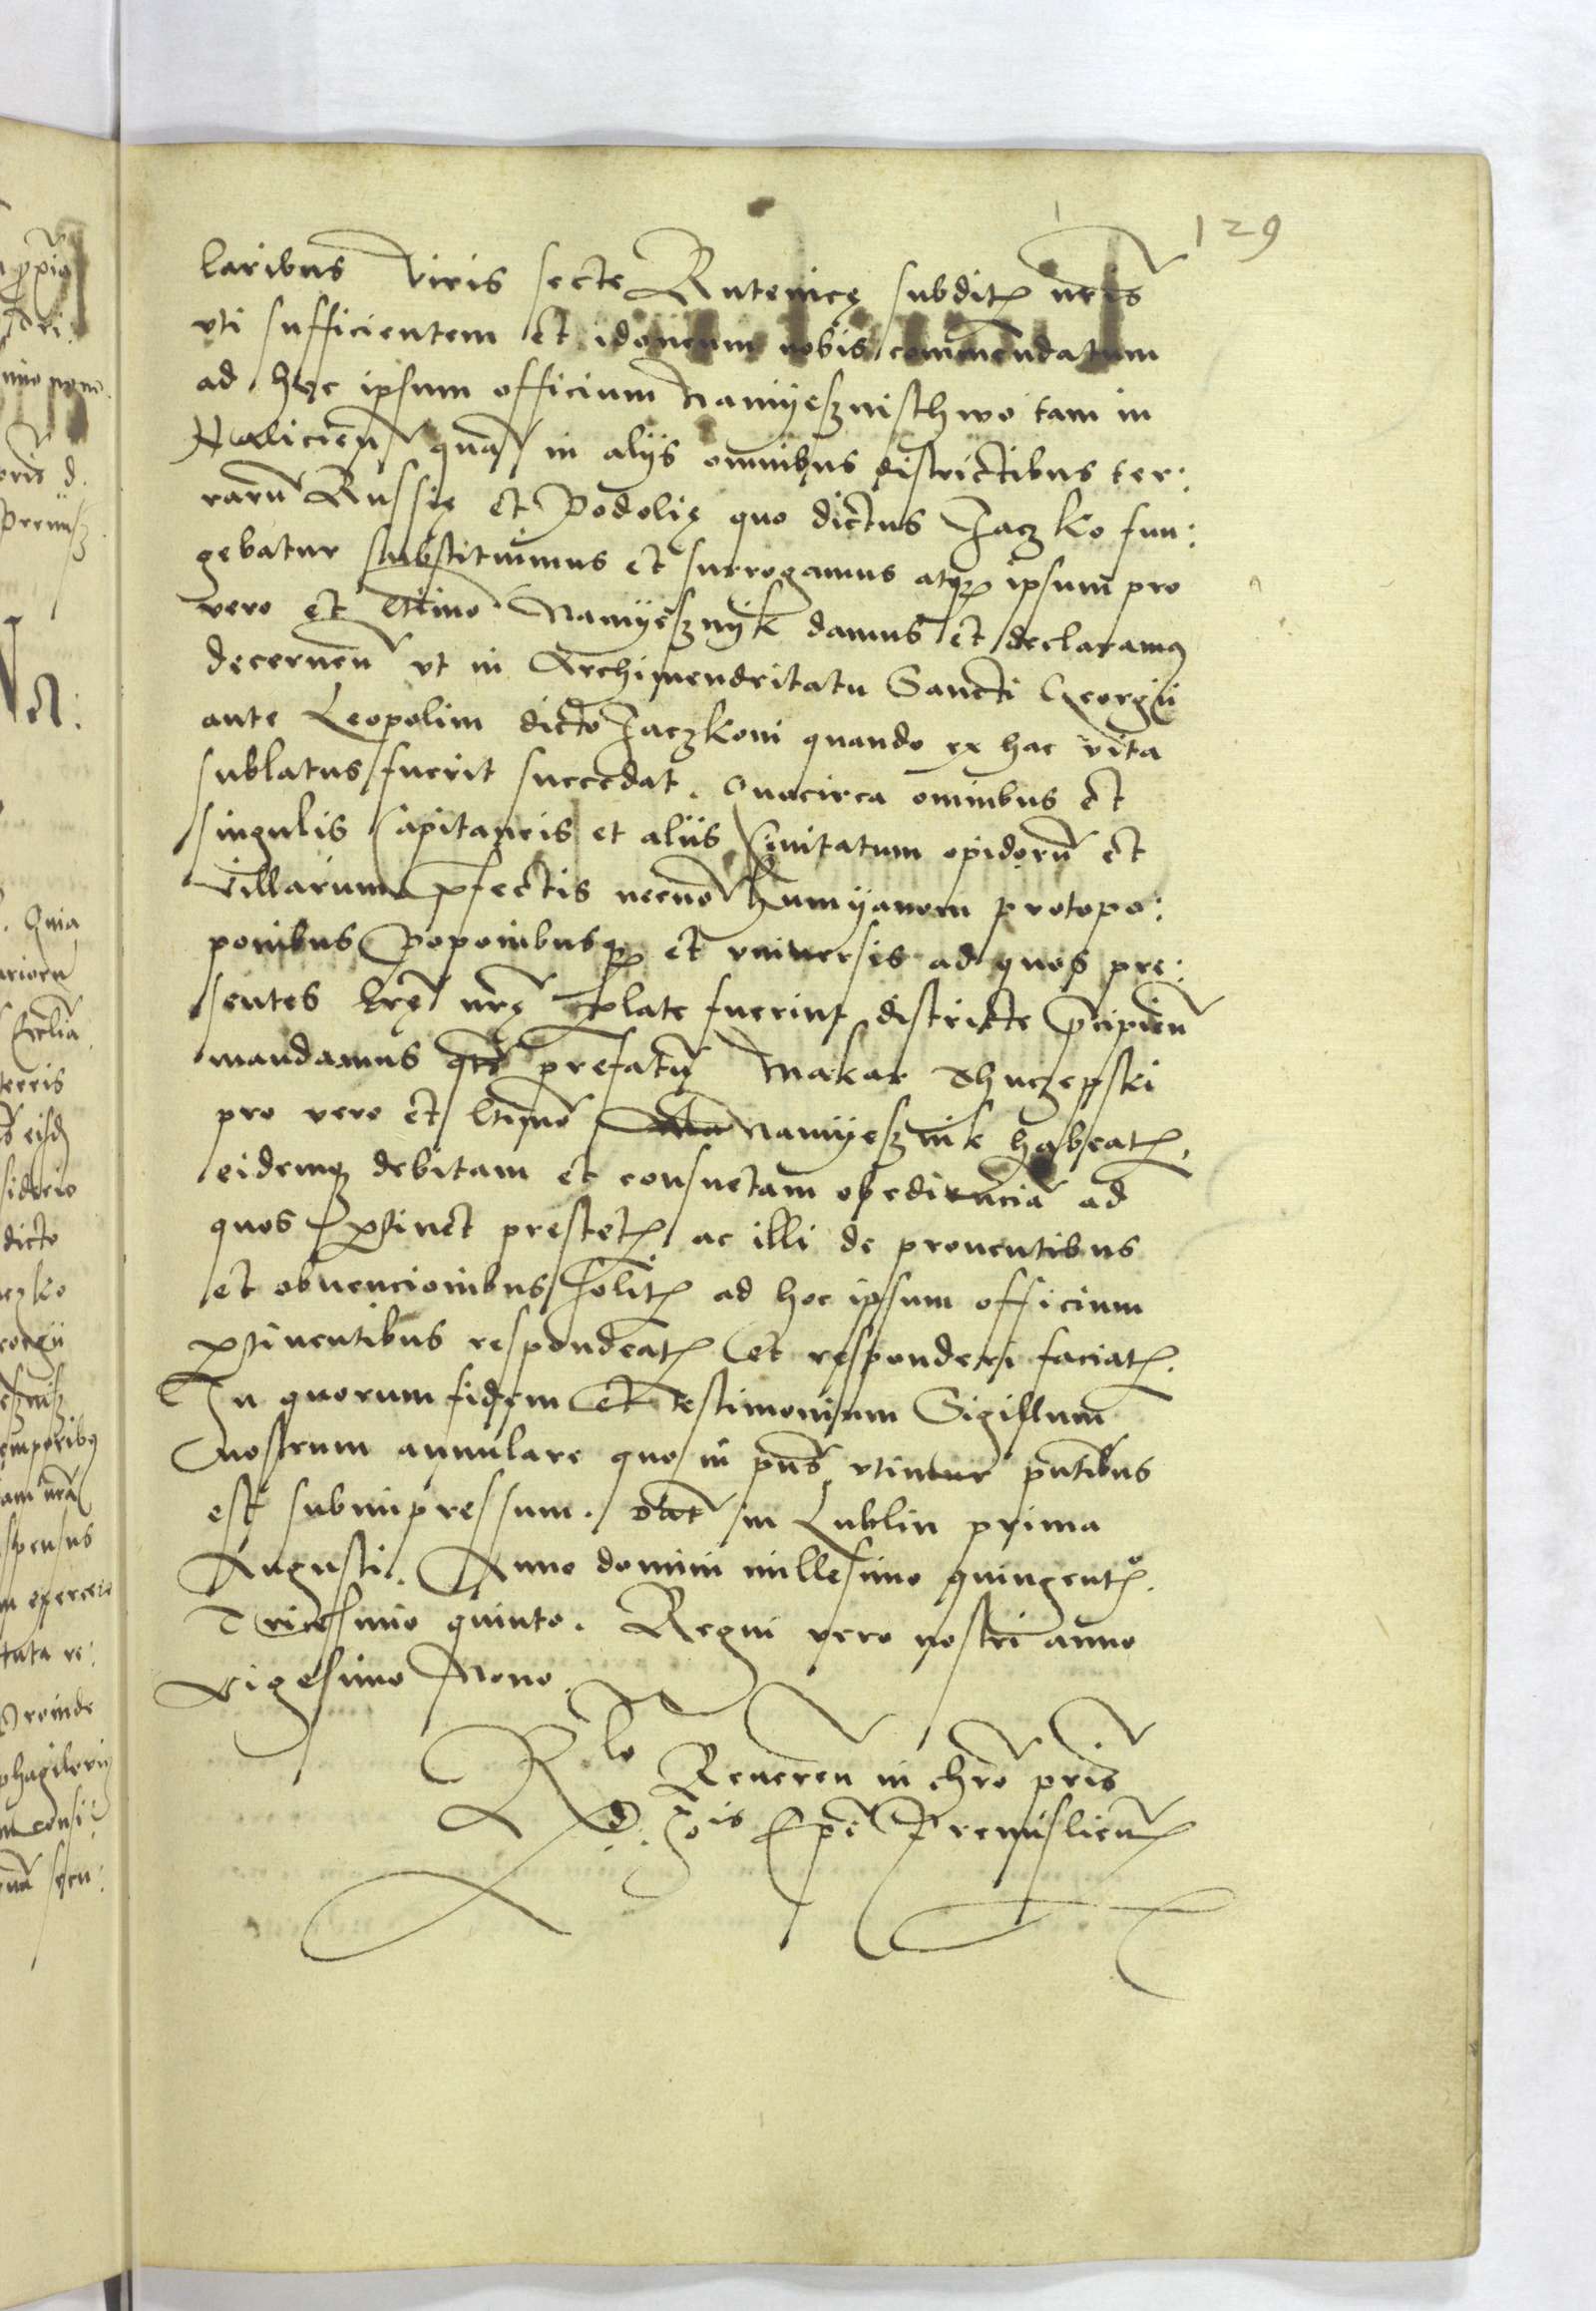 129
laribus viris secte Rutenicę subdit nris
vti sufficientem et idoneum nobis commendatum
ad hoc ipsum officium Namÿesznisthwo tam in
Halicien quā in alijs omnibus districtibus ter:
rarū Russię et Podolię quo dictus Jaczko fun:
gebatur substituimus et surrogamus atq ipsum pro
vero et ltimo Namÿesznÿk damus et declaramus
decernen vt in Archimendritatu Sancti Georgii
ante Leopolim dicto Jaczkoni quando ex hac vita
sublatus fuerit succedat. Quocirca omnibus et
singulis Capitaneis et aliis Ciuitatum opidorū et
villarum pfectis necnō humÿanom protopo:
ponibus Poponibusq et vniuersis ad quos pre:
sentes lrę nrę plate fuerint districte pcipien
mandamus qtē prefatū Makar Thuczepski
pro vero et ltimo Namÿesznik habeat,
eidemq debitam et consuetam obedienciā ad
quos ptinet prestet ac illi de prouentibus
et obuencionibus solit ad hoc ipsum officium
ptinentibus respondeat et responderi faciat.
In quorum fidem et testimonium Sigillum
nostrum annulare quo in pns vtimur pntibus
est subimpressum. Dat in Lublin prima
Augusti. Anno domini millesimo quingento.
Tricesimo quinto. Regni vero nostri anno
vigesimo Nono.
Rlo Reueren in chro pris
d. Jois Epi Premislien